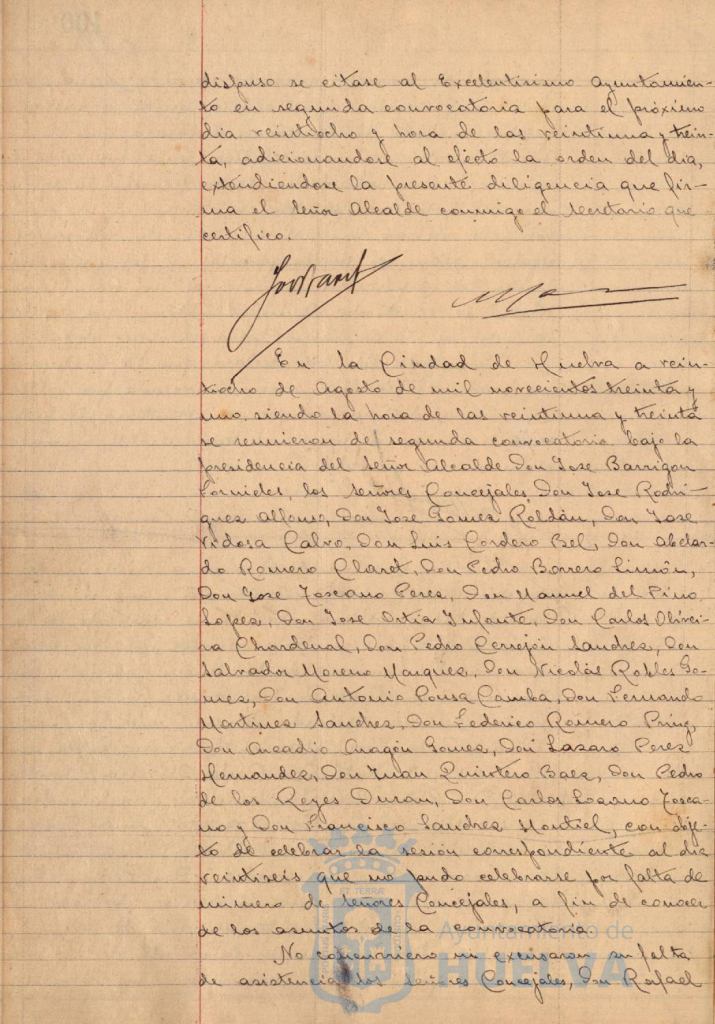 dispuso se citase al Excelentisimo Ayuntamien-
to en segunda convocatoria para el próximo
dia veintiocho y hora de las veintinna y trein-
ta, adicionandose al efecto la orden del dia,
extendiendose la presente diligencia que fir-
ma el Señor Alcalde conmigo el Secretario que
certifico.
En la Ciudad de Huelva a vein-
tiocho de Agosto de mil novecientos treinta y
uno, siendo la hora de las veintinna y treinta
se reunieron de segunda convocatoria bajo la
presidencia del Señor Alcalde Don Jose Barrigon
Fornieles, los Señores Concejales, Don Jose Rodri-
guez Alfonso, Don Jose Gomez Roldán, Don Jose
Vidosa Calvo, Don Luis Cordero Bel, Don Abelar-
do Romero Claret, Don Pedro Borrero Limón,
Don Jose Toscano Perez, Don Manuel del Pino
Lopez, Don Jose Ortiz Infante, Don Carlos Olivei-
ra Chardenal, Don Pedro Cerrejón Sanchez, Don
Salvador Moreno Marquez, Don Nicolás Robles Go-
mez, Don Antonio Pousa Camba, Don Fernando
Martinez Sanchez, Don Federico Romero
Don Arcadio Aragón Gomez, Don Lázaro Perez
Hernandez, Don Juan Quintero Baez, Don Pedro
de los Reyes Duran, Don Carlos Lozano Tosca-
no y Don Francisco Sanchez Montiel, con obje-
to de celebrar la sesión correspondiente al dia
veintiseis que no pudo celebrarse por falta de
número de Señores Concejales, a fin de conocer
de los asuntos de la convocatoria
No concurriero ni excusaron su falta
de asistencia los Señores Concejales, Don Rafael
Ayuntamiento de
HUELVA